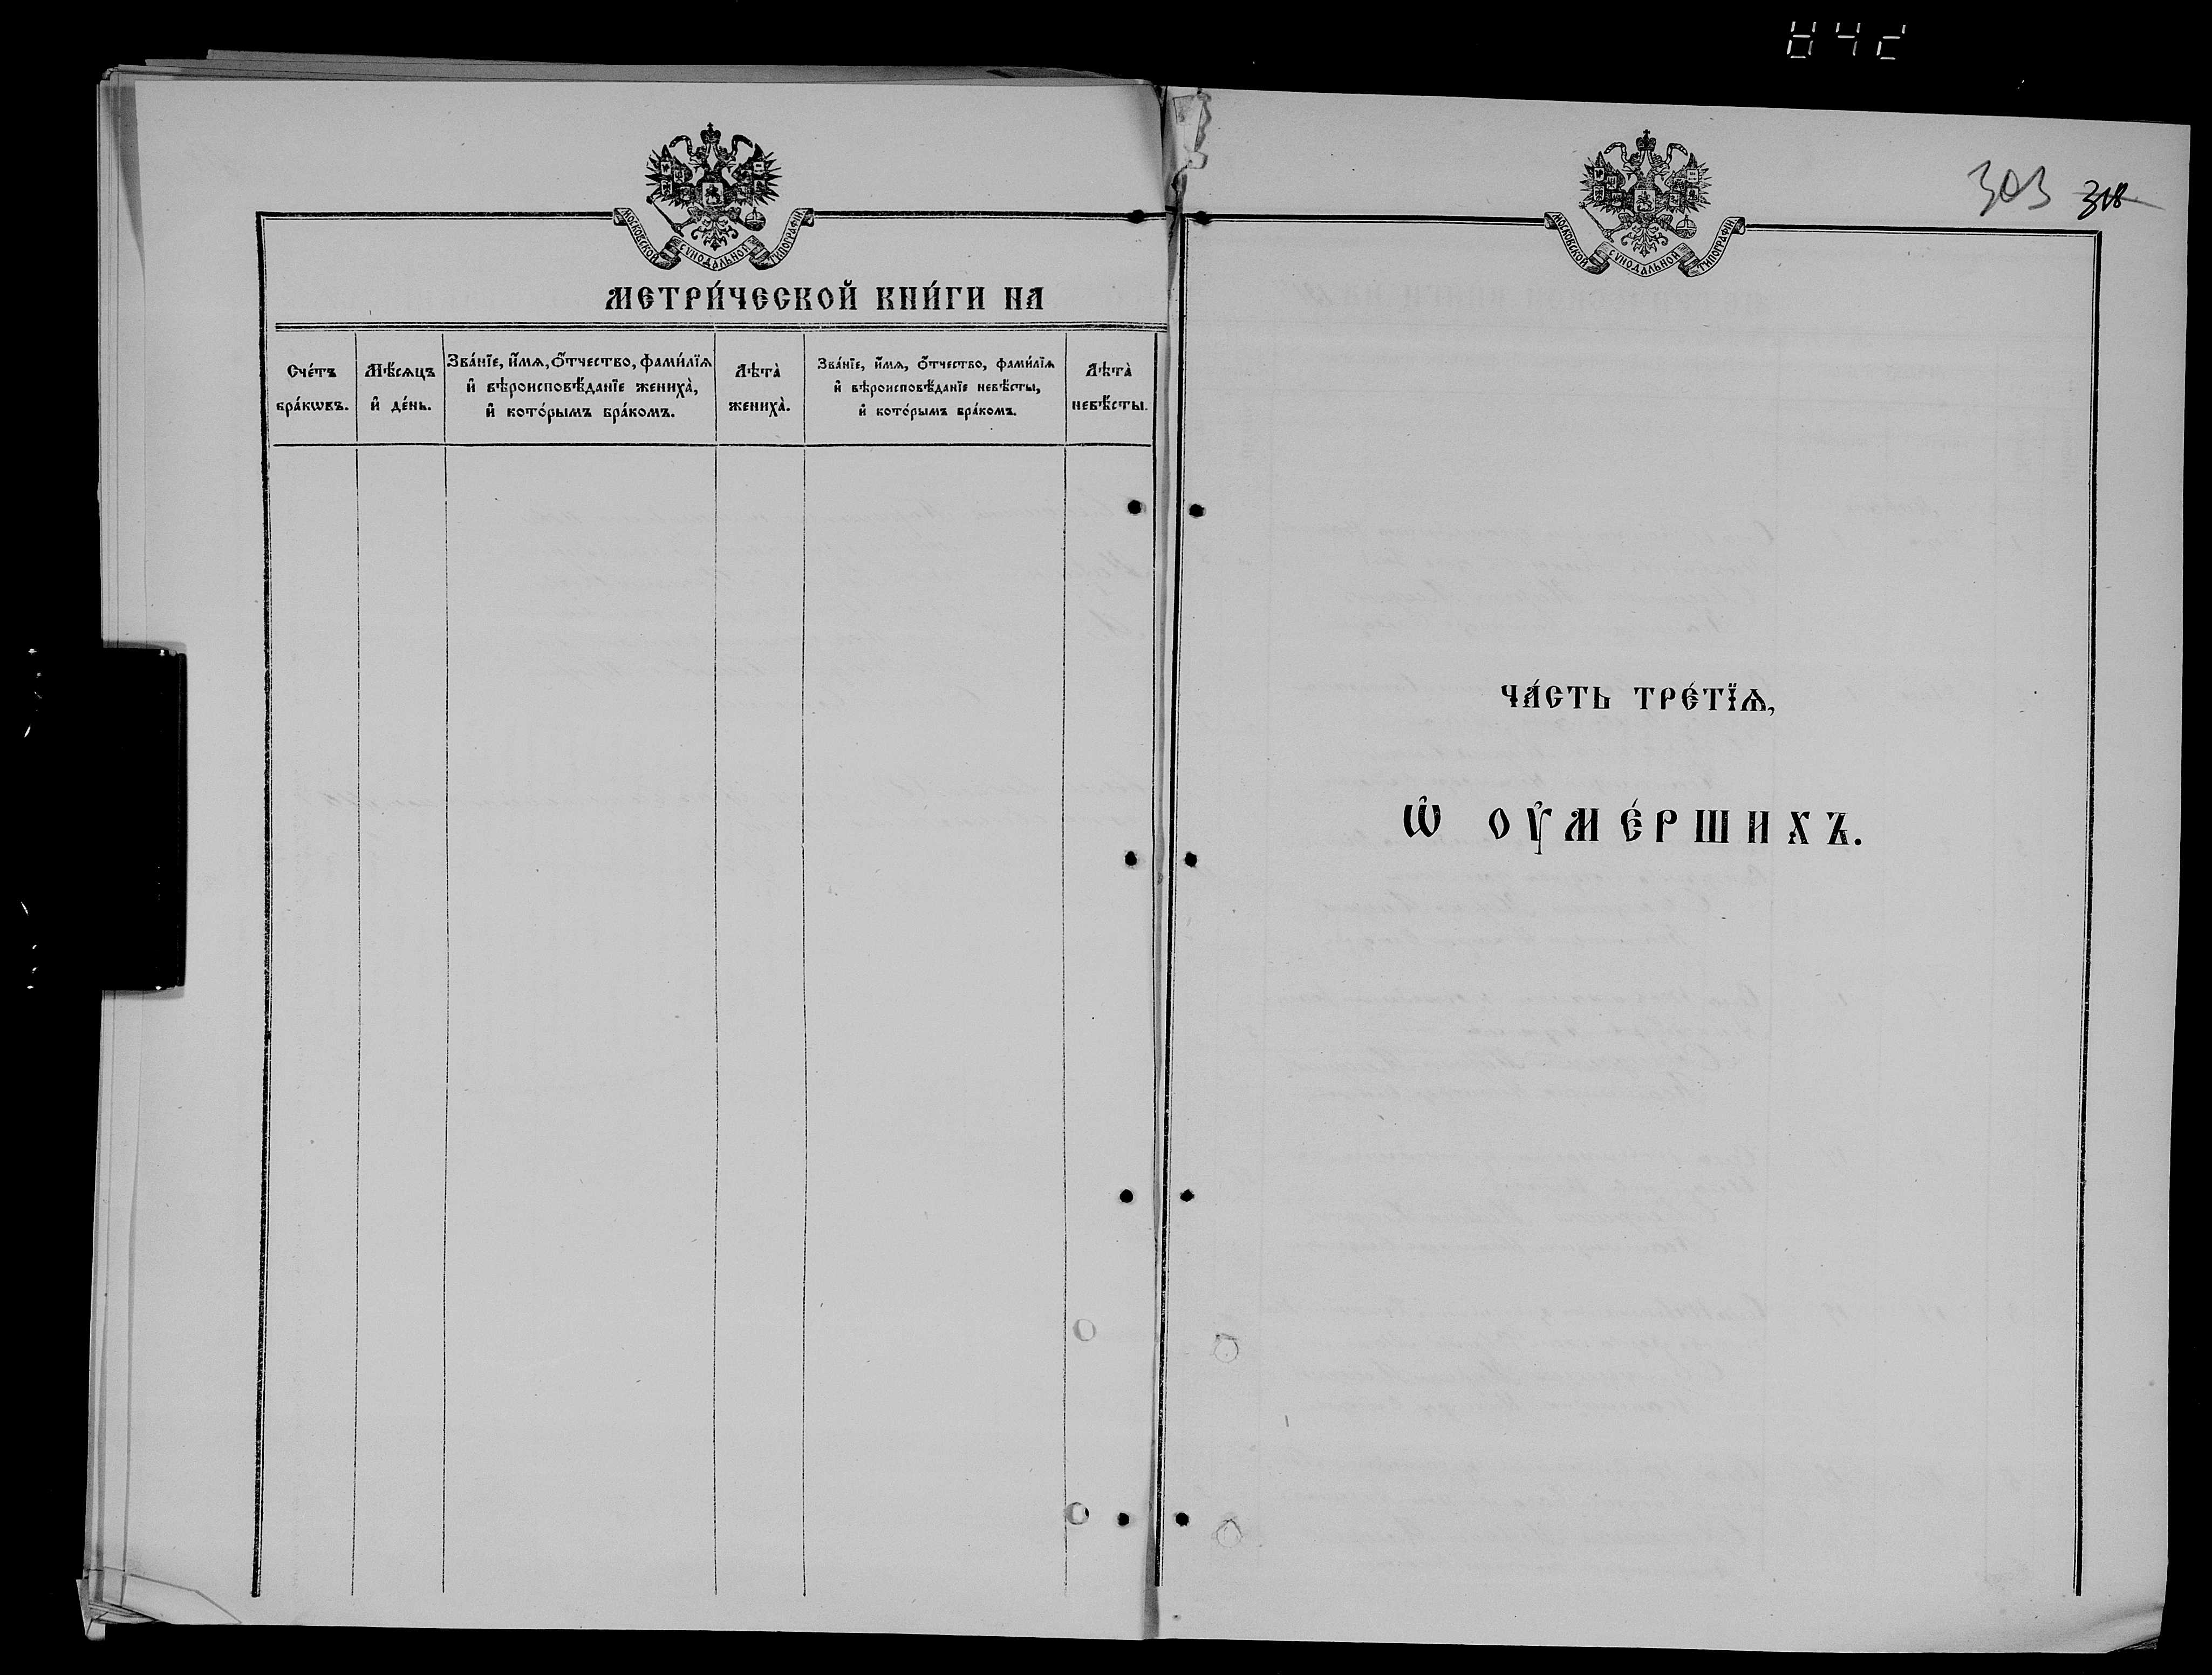 842
МОСКОВСКОЙ СѴНОДАЛЬНОЙ ТИПОГРАФІИ
МЕТРИ́ЧЕСКОЙ КНИ́ГИ НА
Сче́тъ
бра́кѡвъ.
Мѣ́сѧцъ
и҆ де́нь.
Зва́нїе, и҆́мѧ, ѻ҆́тчество, фами́лїѧ
и҆ вѣроисповѣ́данїе жениха̀,
и҆ кото́рымъ бра́комъ.
Лѣта̀
жениха̀.
Зва́нїе, и҆́мѧ, ѻ҆́тчество, фами́лїѧ
и҆ вѣроисповѣ́данїе невѣ́сты,
и҆ кото́рымъ бра́комъ.
Лѣта̀
невѣ́сты.
МОСКОВСКОЙ СѴНОДАЛЬНОЙ ТИПОГРАФІИ
303 318
ЧА́СТЬ ТРЕ́ТЇѦ,
Ѡ҆ ОУ҆МЕ́РШИХЪ.